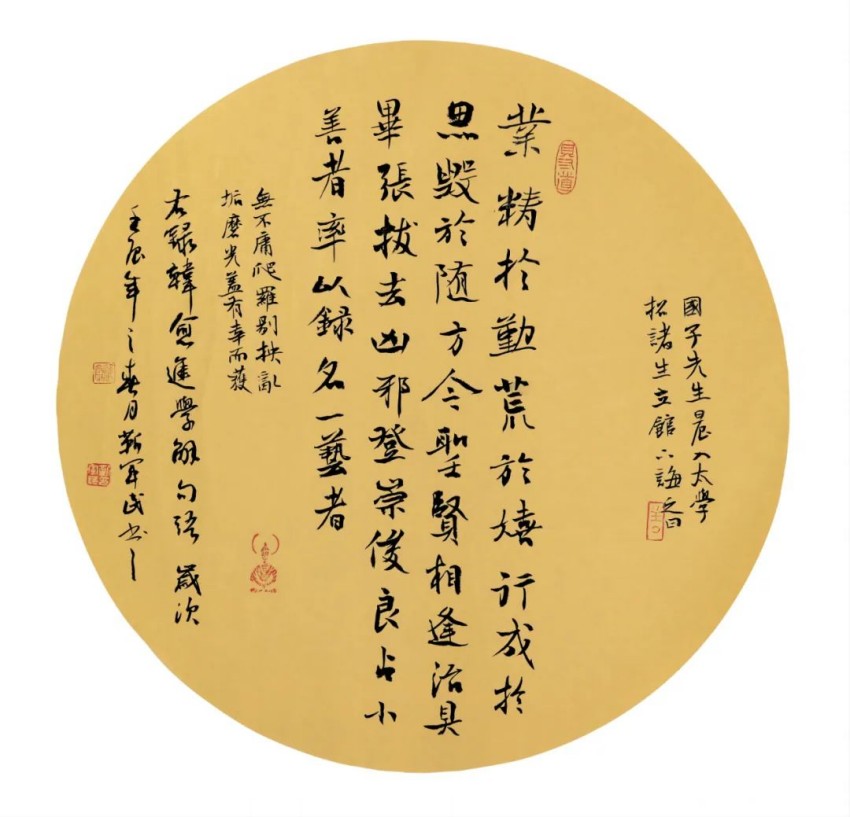 國子先生晨入太學
招諸生立館下誨之曰
業精於勤荒於嬉行成於
思毀於随方今聖賢相逢治具
畢張拔去凶邪登崇俊良占小
善者率以録名一藝者
無不庸爬羅剔抉刮
垢磨光蓋有幸而獲
右録韓愈進學解句語歲次
壬辰年之春月靳軍民书之